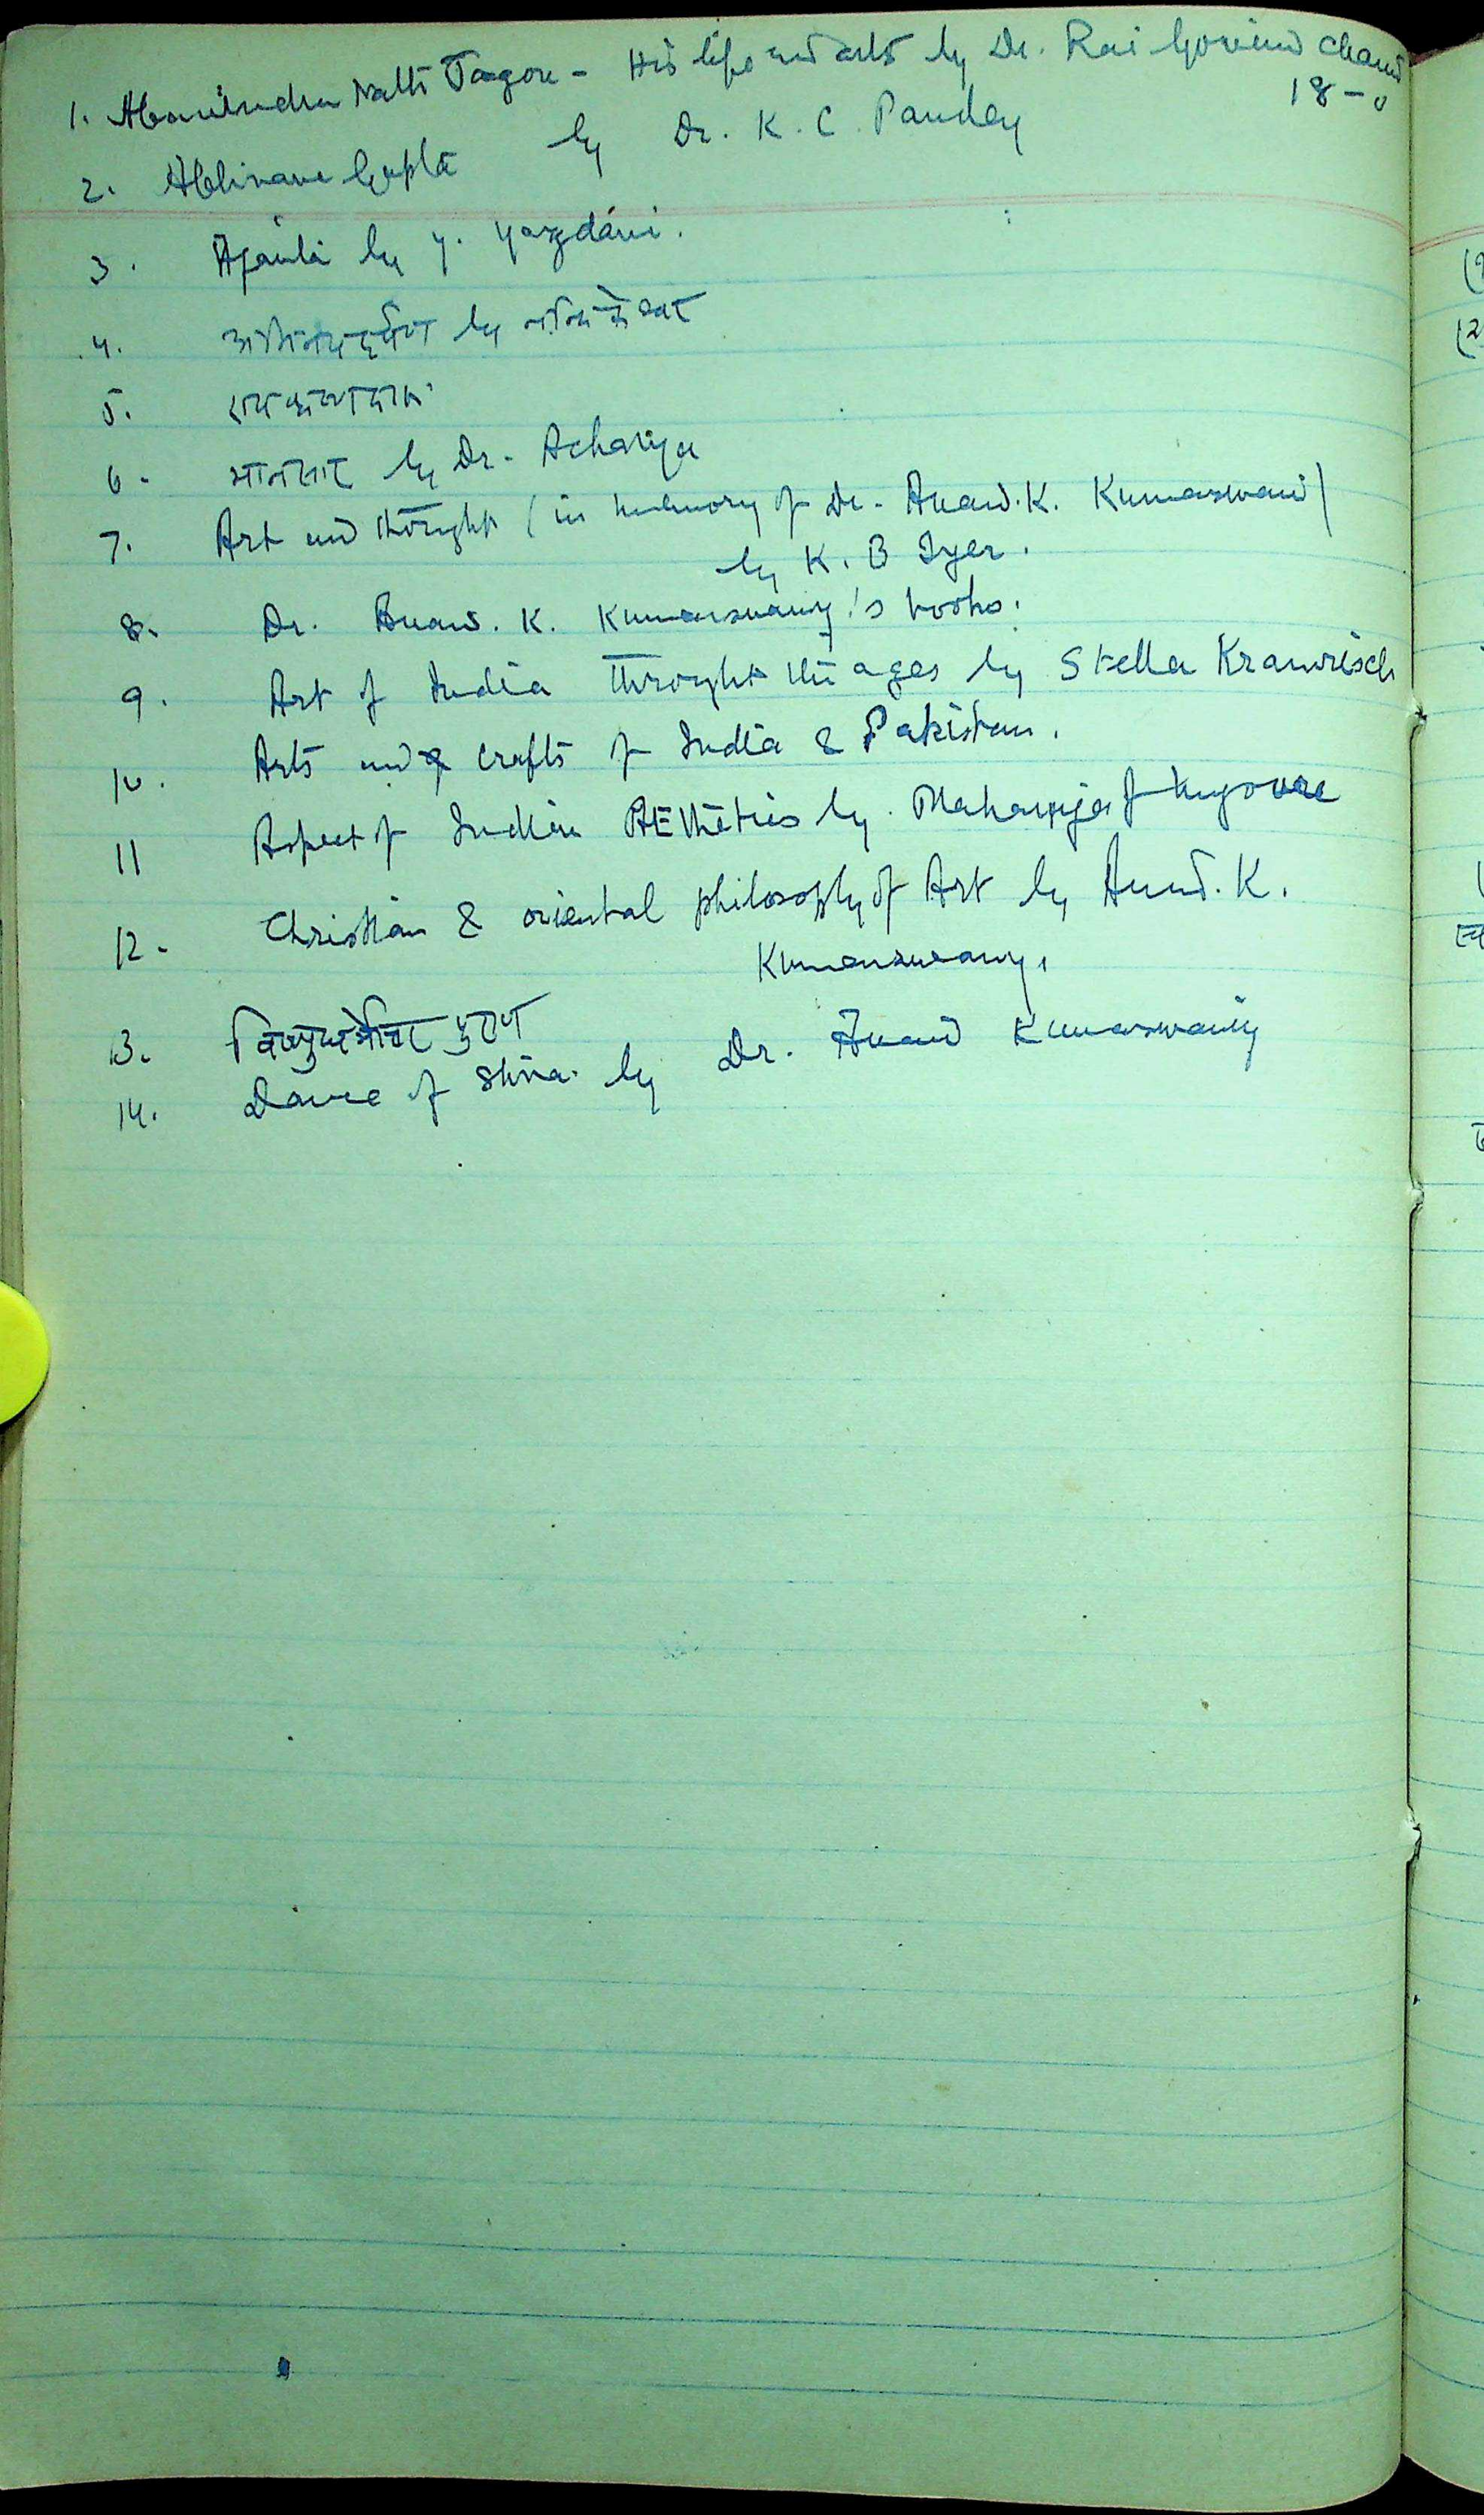 1. Abanindra Nath Tagore - His life and arts by Dr. Rai Govind Chand
18-0
2. Abhinava Gupta by Dr. K. C. Pandey
3. Ajanta by Y. Yazdani.
4. अभिनयदर्पण by नन्दिकेश्वर
5.
6. मानसार by Dr. Achariya
7. Art and thought (in memory of Dr. Anand. K. Kumarswami)
by K. B Iyer.
8. Dr. Anand. K. Kumarswamy's books.
9. Art of India throught the ages by Stella Kramrisch
10. Arts and crafts of India & Pakistan.
11 Aspect of Indian AEthetics by Maharaja of Mysoure
12. Christian & oriental philosophy of Art by Anand. K.
Kumarswamy.
13. विष्णुधर्मोत्तर पुराण
14. Dance of Shiva by Dr. Anand Kumarswamy